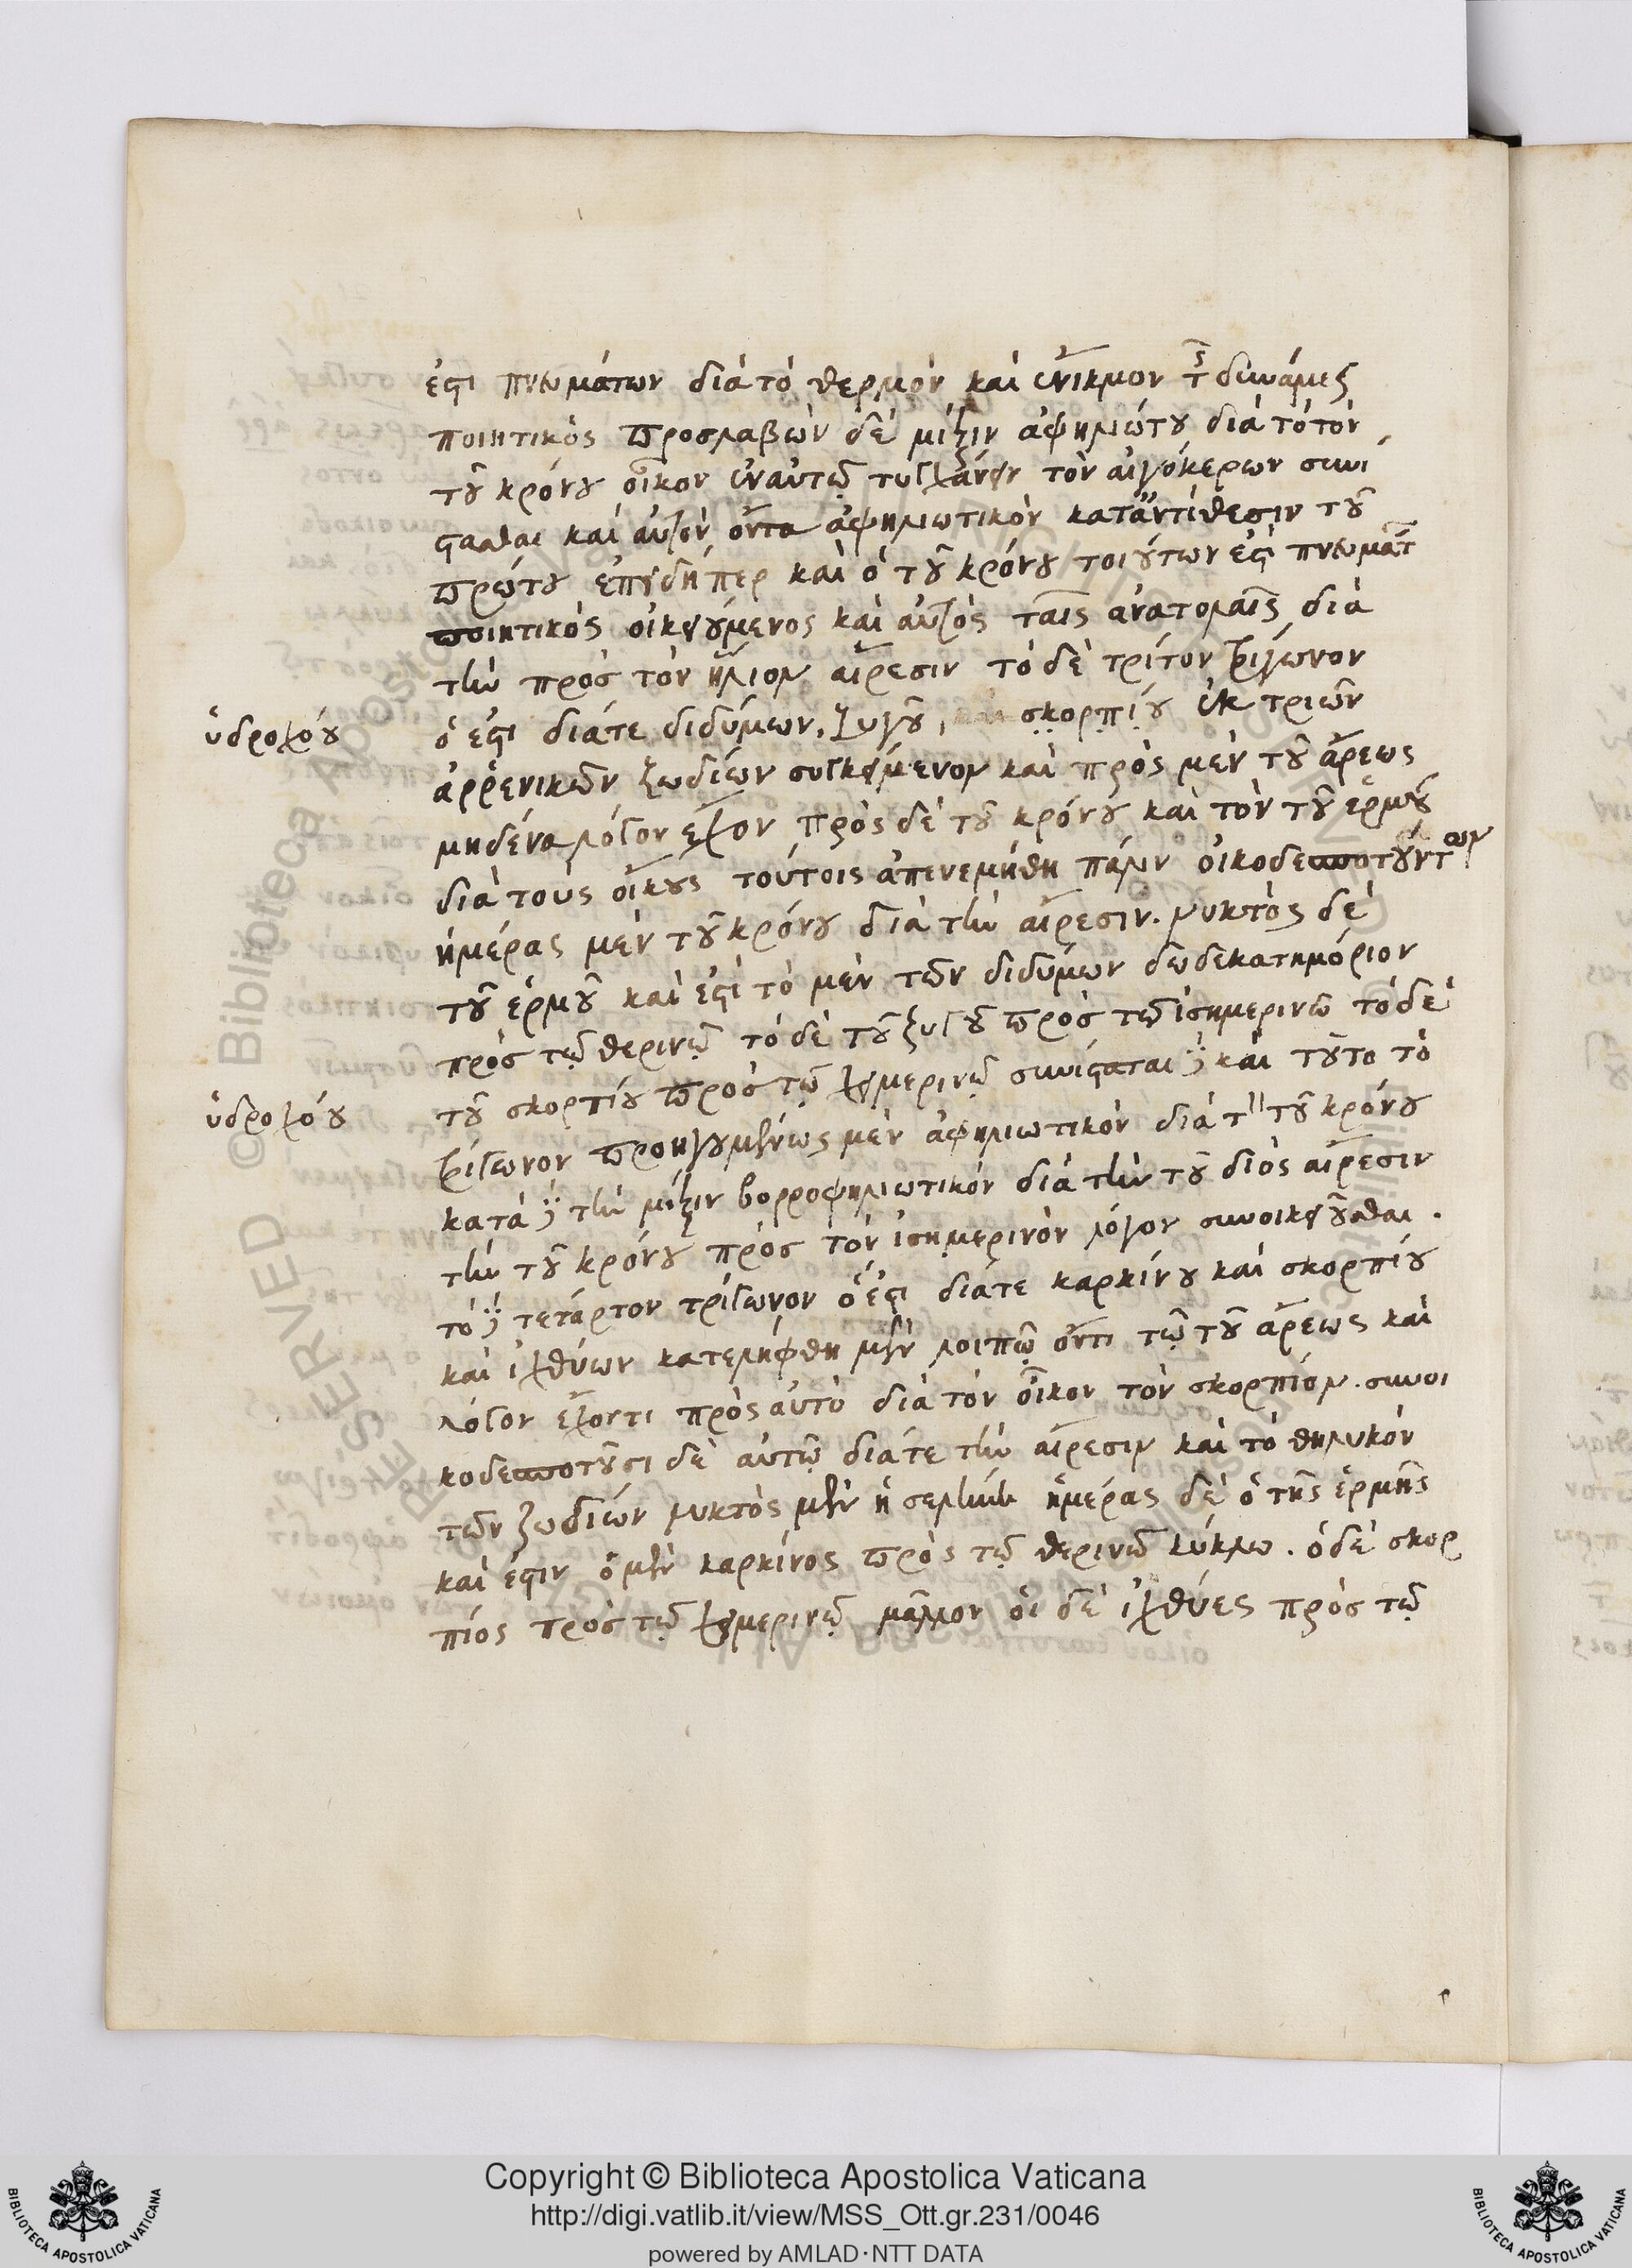 ἐστι πνευμάτων διὰ τὸ θερμὸν καὶ ἔνικμον τ̂ς δυνάμεως
ποιητικὸς προσλαβὼν δὲ μίξιν ἀφηλιώτου διὰ τὸ τὸν
τοῦ κρόνου οἶκον ἐν αὐτῷ τυγχάνειν τὸν αἰγόκερων συνί
στασθαι καὶ αὐτὸν ὄντα ἀφηλιωτικὸν κατ' ἀντίθεσιν τοῦ
πρώτου ἐπειδήπερ καὶ ὁ τοῦ κρόνου τοιούτων ἐστὶ πνευμάτ
ποιητικὸς οἰκειούμενος καὶ αὐτὸς ταῖς ἀνατολαῖς διὰ
τὴν πρὸς τὸν ἥλιον αἵρεσιν τὸ δὲ τρίτον τρίγωνον
ὑδροχόου
ὅ ἐστι διά τε διδύμων, ζυγοῦ, καὶ σκορπίου ἐκ τριῶν
ἀρρενικῶν ζωδίων συγκείμενον καὶ πρὸς μὲν τοῦ ἄρεως
μηδένα λόγον ἔχον πρὸς δὲ τοῦ κρόνου καὶ τὸν τοῦ ἑρμοῦ
διὰ τοὺς οἴκους τούτοις ἀπενεμήθη πάλιν οἰκοδεσποτούντων
ἡμέρας μὲν τοῦ κρόνου διὰ τὴν αἵρεσιν. νυκτὸς δὲ
τοῦ ἑρμοῦ καὶ ἐστὶ τὸ μὲν τῶν διδύμων δωδεκατημόριον
πρὸς τῷ θερινῷ τὸ δὲ τοῦ ζυγοῦ πρὸς τῷ ἰσημερινῷ τὸ δὲ
ὑδροχόου
τοῦ σκορπίου πρὸς τῷ χειμερινῷ συνίσταται δὲ καὶ τοῦτο τὸ
τρίγωνον προηγουμένως μὲν ἀφηλιωτικὸν διὰ τ̀ τοῦ κρόνου
κατὰ δὲ τὴν μίξιν βορροφηλιωτικὸν διὰ τὴν τοῦ διὸς αἵρεσιν
τὴν τοῦ κρόνου πρὸς τὸν ἰσημερινὸν λόγον συνοικειοῦσθαι.
τὸ δὲ τετάρτον τρίγωνον ὅ ἐστι διά τε καρκίνου καὶ σκορπίου
καὶ ἰχθύων κατελήφθη μὲν λοιπῷ ὄντι τῷ τοῦ ἄρεως καὶ
λόγον ἔχοντι πρὸς αὐτὸ διὰ τὸν οἶκον τὸν σκορπίον. συνοι
κοδεσποτοῦσι δὲ αὐτῷ διά τε τὴν αἵρεσιν καὶ τὸ θηλυκὸν
τῶν ζωδίων νυκτὸς μὲν ἡ σελήνη ἡμέρας δὲ ὁ τῆς ἑρμῆς
καὶ ἐστιν ὁ μὲν καρκίνος πρὸς τῷ θερινῷ κύκλω. ὁ δὲ σκορ
πίος πρὸς τῷ χειμερινῷ μᾶλλον οἱ δὲ ἰχθύες πρὸς τῷ
Copyright © Biblioteca Apostolica Vaticana
http://digi.vatlib.it/view/MSS_Ott.gr.231/0046
powered by AMLAD·NTT DATA